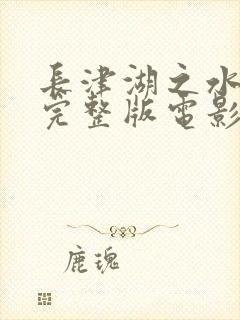 長津湖之水
完整版電影
鹿瑰